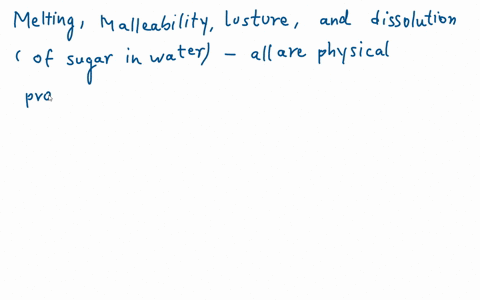 Melting, Malleability, Lusture, and dissolution
( of sugar in water) – all are physical
pro